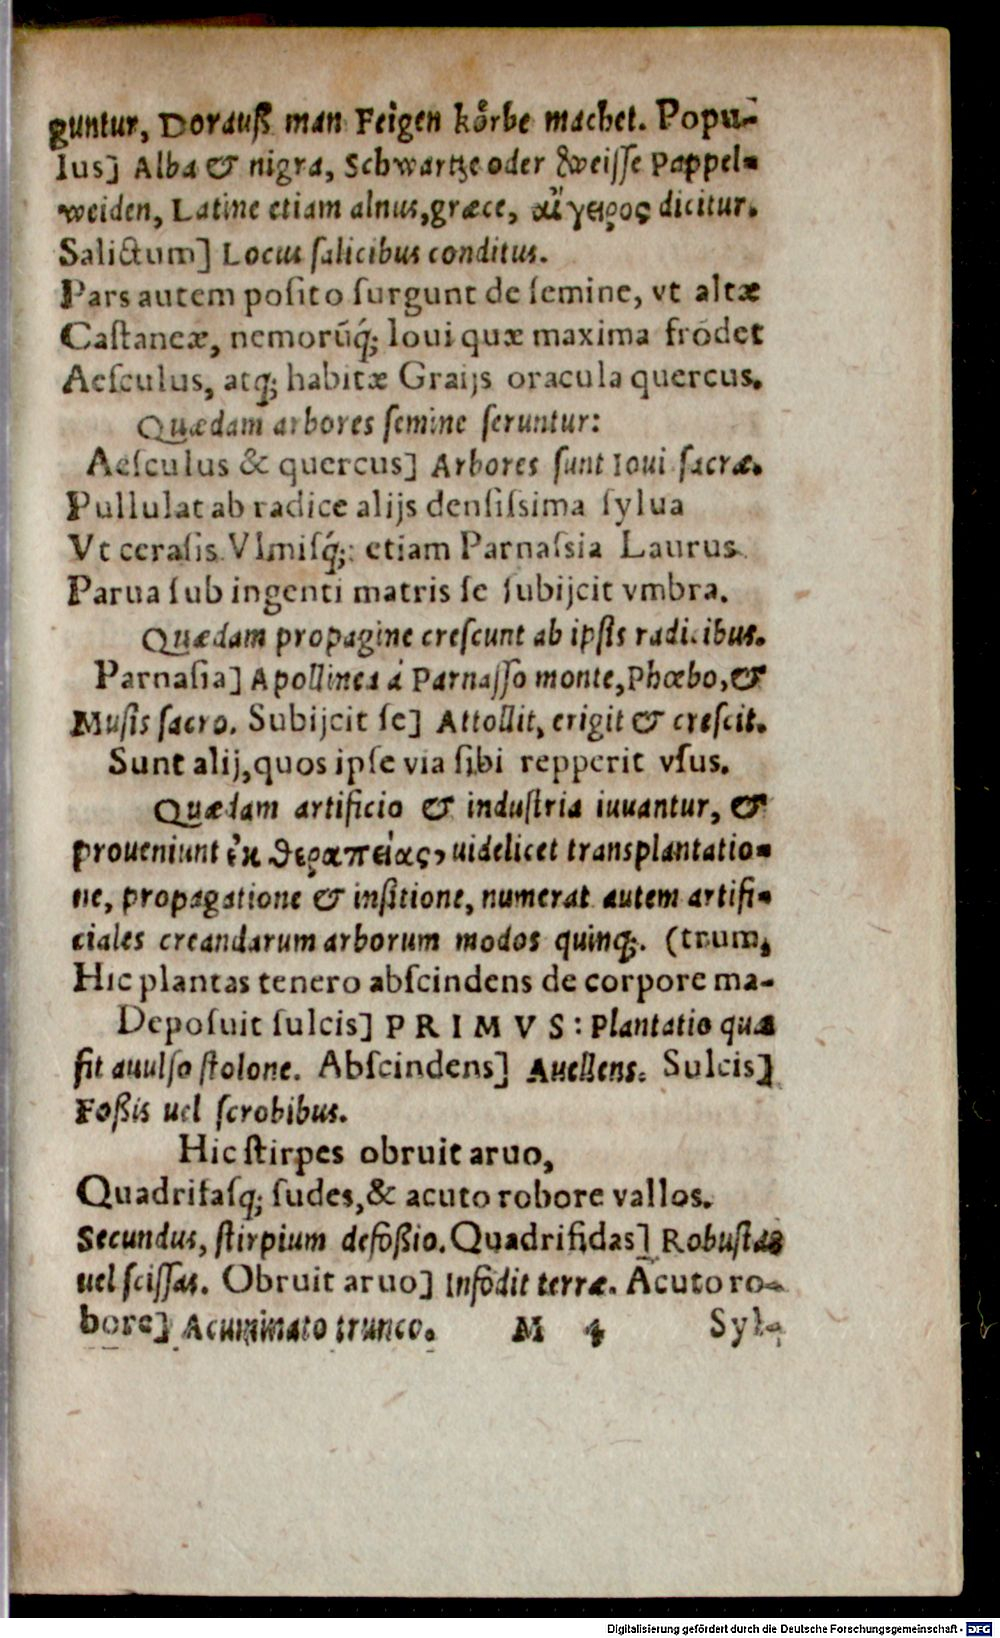 guntur, Dorauß man Feigen kôrbe machet. Popu-
lus] Alba & nigra, Schwartze oder weiſſe Pappel-
weiden, Latine etiam alnus, græce, αἴγειρος dicitur.
Salictum] Locus ſalicibus conditus.
Pars autem poſito ſurgunt de ſemine, vt altæ
Caſtaneæ, nemorūq́; Ioui quæ maxima frōdet
Aeſculus, atq; habitæ Graijs oracula quercus.
Quædam arbores ſemine ſeruntur:
Aeſculus & quercus] Arbores ſunt Ioui ſacræ.
Pullulat ab radice alijs denſiſsima ſylua
Vt ceraſis Vlmiſq́;: etiam Parnaſsia Laurus
Parua ſub ingenti matris ſe ſubijcit vmbra.
Quædam propagine creſcunt ab ipſis radicibus.
Parnaſia] Apollinea á Parnaſſo monte, Phœbo, &
Muſis ſacro. Subijcit ſe] Attollit, erigit & creſcit.
Sunt alij, quos ipſe via ſibi repperit vſus.
Quædam artificio & induſtria iuuantur, &
proueniunt ἐκ θεραπείας, uidelicet transplantatio-
ne, propagatione & inſitione, numerat autem artifi-
ciales creandarum arborum modos quinq;. (trum,
Hic plantas tenero abſcindens de corpore ma-
Depoſuit ſulcis] PRIMVS: Plantatio quæ
fit auulſo ſtolone. Abſcindens] Auellens. Sulcis]
Foßis uel ſcrobibus.
Hic ſtirpes obruit aruo,
Quadrifaſq; ſudes, & acuto robore vallos.
Secundus, ſtirpium defoßio. Quadrifidas] Robuſtas
uel ſciſſas. Obruit aruo] Infodit terræ. Acuto ro-
bore] Acuminato trunco. M 4 Syl-
Digitalisierung gefördert durch die Deutsche Forschungsgemeinschaft - DFG